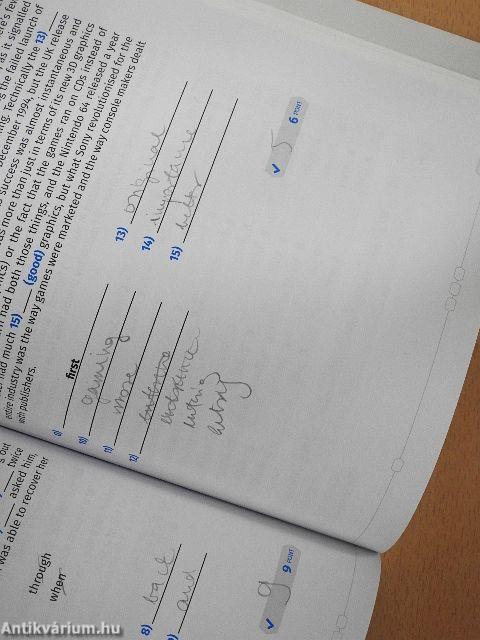 as it signalled
the failed launch of
Technically the 13) ___
December 1994, but the UK release
success was almost instantaneous and
was more than just in terms of its new 3D graphics
or the fact that the games ran on CDs instead of
had both those things, and the Nintendo 64 released a year
had much 15) ___ (good) graphics, but what Sony revolutionised for the
entire industry was the way games were marketed and the way console makers dealt
with publishers.
first
10) gaming
11) more
12)
13) original
14) importance
15) better
5
6 PONT
out
twice
asked him,
was able to recover her
through
when
8) back
and
9
9 PONT
Antikvárium.hu